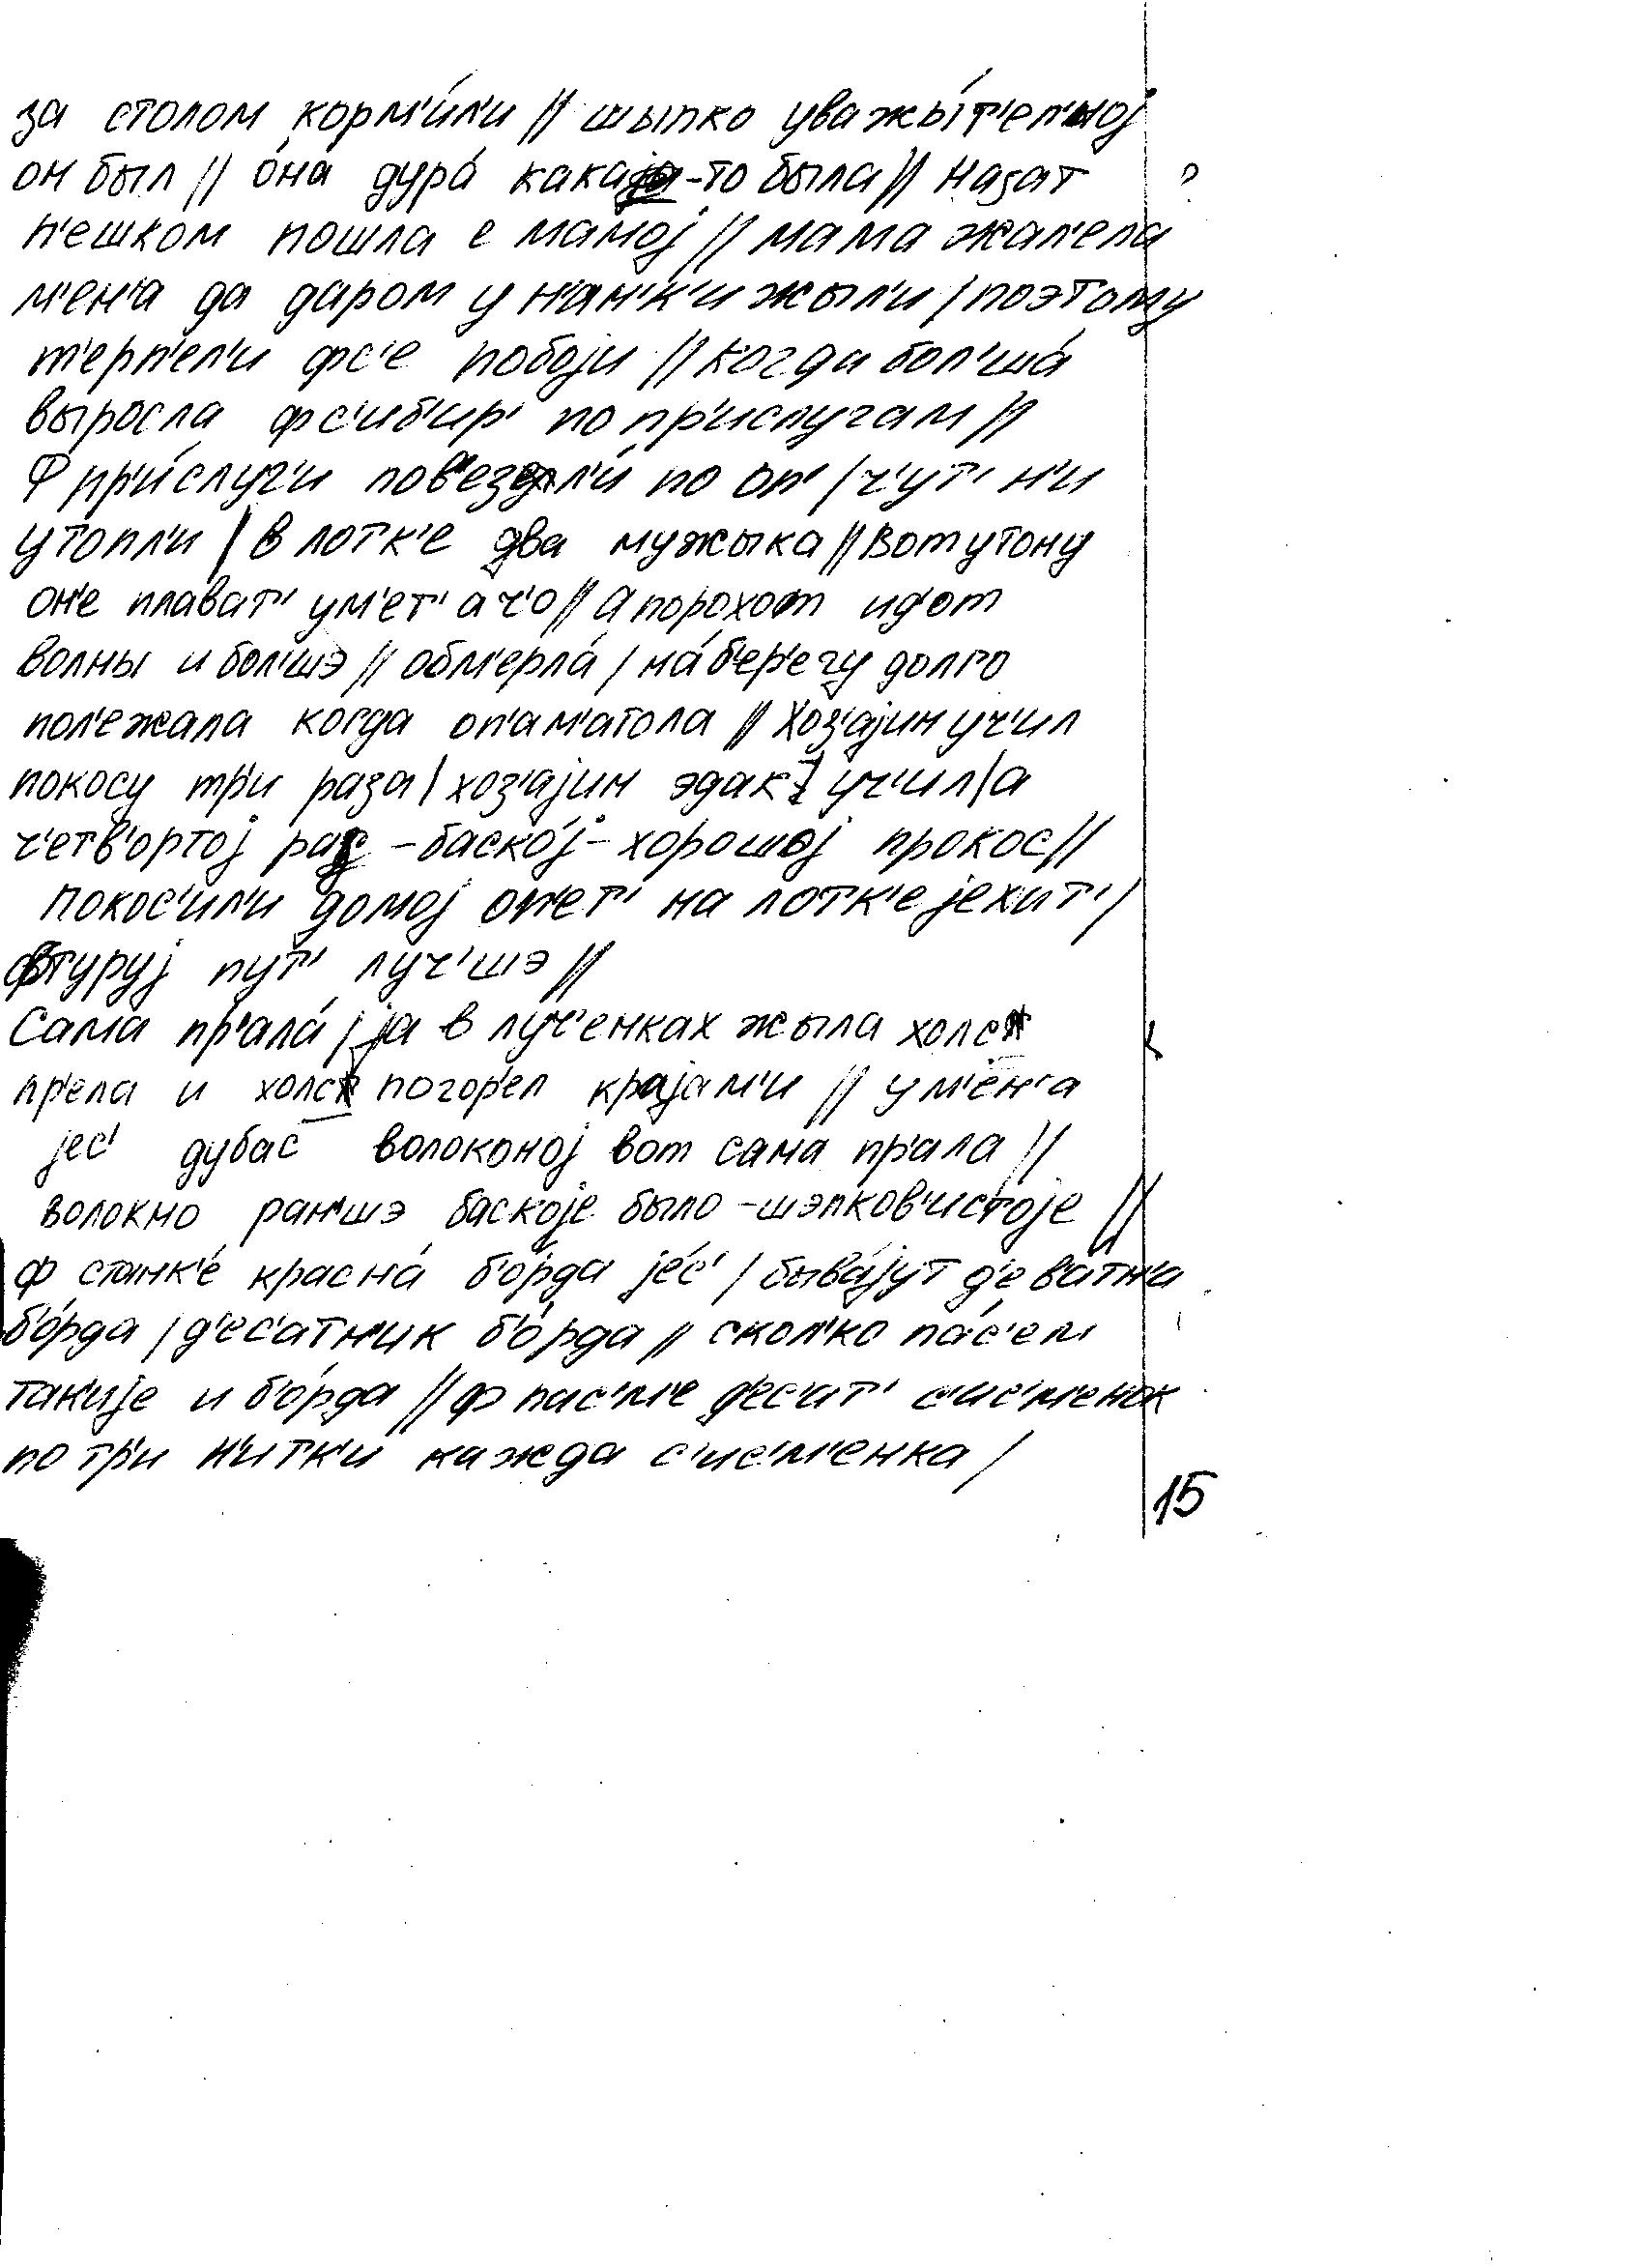 за столом корм'и́л'и // шыпко уважы́т'ел'ној
он был // о́на дура́ какаја-то была // Назат ?
п'ешком пошла с мамој // мама жал'ела
м'ен'а да даром у н'ан'к'и жыл'и / поэтому
т'ерп'ел'и фс'е побоји // когда бол'ша́
выросла ф с'иб'ир' по пр'ислугам //
Ф пр'и́слуг'и пов'езл'и́ по оп' / ч'ут' н'и
утопл'и / в лотк'е два мужыка // Вот утону
он'е плават' ум'ет' а ч'о // а пороход ид'от
волны и бол'шэ // обм'ерла́ / на́ б'ер'егу долго
пол'ежала когда оп'ам'атола // Хоз'ајин уч'ил
покосу тр'и раза / хоз'ајин эдак уч'ил / а
ч'етв'ортој рас -баско́ј- хорошој прокос //
покос'ил'и домој оп'ет' на лотк'е јехит' /
фтуруј пут' луч'шэ //
Сама пр'ала́ / ја в луч'енках жыла холст
пр'ела и холст погор'ел крајам'и // у м'ен'а
јес' дубас волоконој вот сама пр'ала //
волокно ран'шэ баскоје было -шэлков'истоје //
ф станк'е́ красна́ б'о́рда је́с' / быва́јут д'ев'атн'а
б'о́рда / д'ес'атн'ик б'о́рда // скол'ко па́с'ем
так'ије и б'о́рда // ф пас'м'е д'ес'ит' с'ис'м'енок
по тр'и н'итк'и кажда с'ис'м'енка /
15